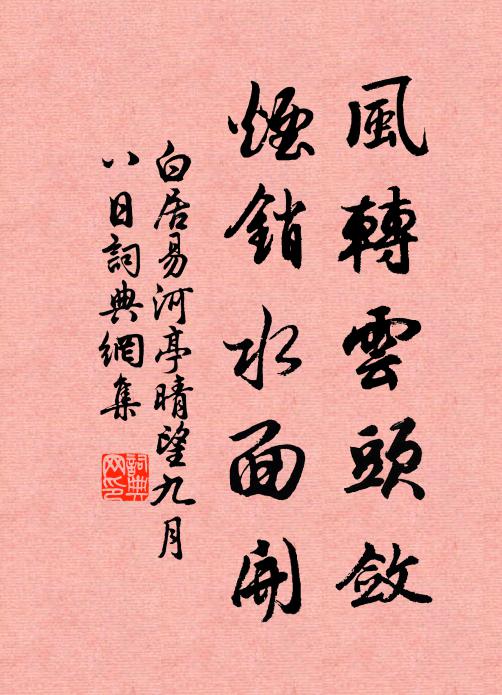 風轉雲頭斂
煙銷水面開
白居易河亭晴望九月
八日詞典網集
詞典网印